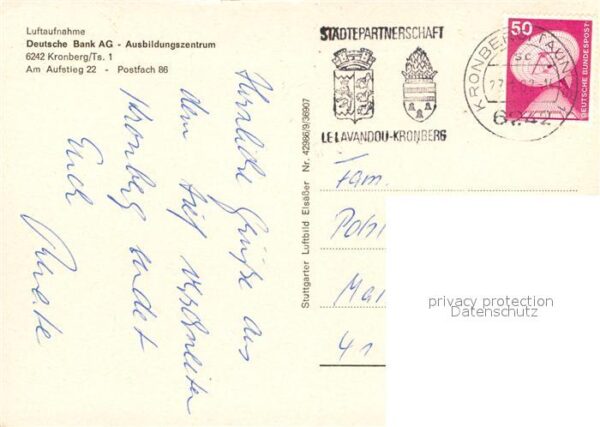 Luftaufnahme
Deutsche Bank AG - Ausbildungszentrum
6242 Kronberg/Ts. 1
Am Aufstieg 22 - Postfach 86
Herzliche Grüße aus
dem tief verschneiten
Kronberg sendet
Euch
Stuttgarter Luftbild Elsäßer Nr. 42986/9/36907
STÄDTEPARTNERSCHAFT
LE LAVANDOU-KRONBERG
KRONBERG, TAUNUS 1
6242
50
DEUTSCHE BUNDESPOST
Fam.
41
privacy protection
Datenschutz